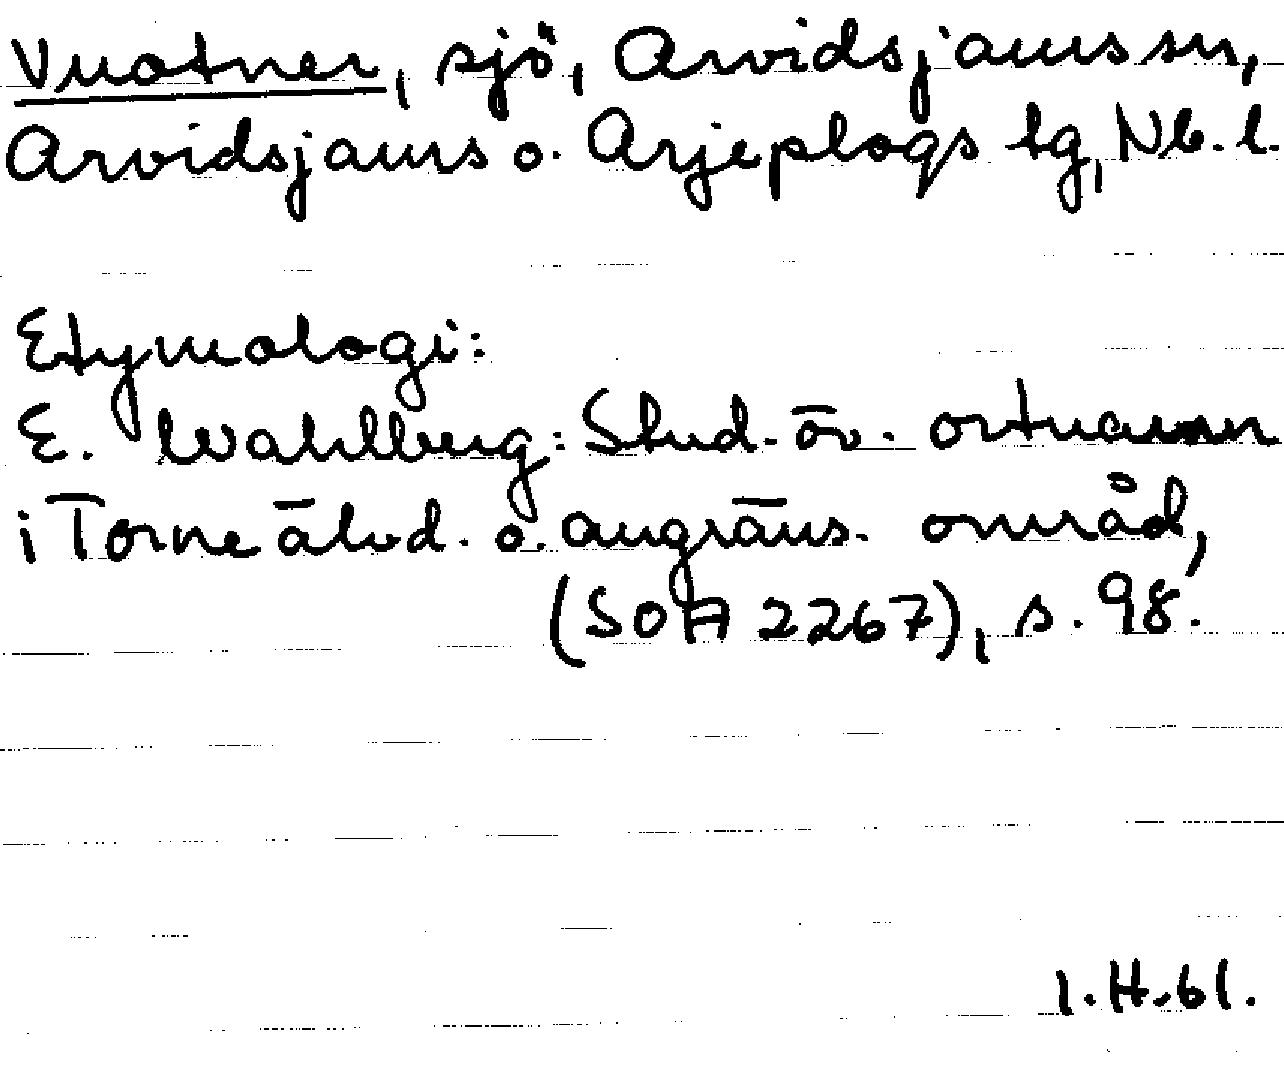 Vuotner, sjö, Arvidsjaurs sn,
Arvidsjaurs o. Arjeplogs tg, Nb. l.
Etymologi:
E. Wahlberg: Stud. öv. ortnamn
i Torne älvd. o. angräns. områd,
(SOA 2267), s. 98.
I.H.61.